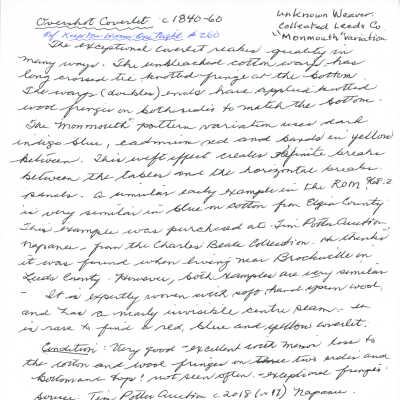 Overshot Coverlet c 1840-60
unknown Weaver.
collected Leeds Co.
"Monmouth" Variation
of Keep Me Warm One Night # 260
The exceptional coverlet reaches quality in
many ways. The unbleached cotton warp has
long crossed tie knotted fringe at the bottom.
The warps (doubles) ends have applied knotted
wool fringes on both sides to match the bottom.
The "Monmouth" pattern variation uses dark
indigo blue, cadmium red and bands in yellow
between. This weft effect creates definite breaks
between the tables and the horizontal breaks
panels. A similar early example in the ROM 968.2
is very similar in blue on cotton from Elgin County
This example was purchased at Tim Potter Auction
Napanee - from the Charles Beale Collection. He thinks
it was found when living near Brockville in
Leeds County. However, both examples are very similar
- It is expertly woven with soft hand spun wool,
and has a nearly invisible centre seam. - it
is rare to find a red, blue and yellow coverlet.
Condition: Very good - excellent with minor loss to
the cotton and wool fringes on two sides and
bottom and top! not seen often. - exceptional fringes
Source: Tim Potter Auction c 2018 (or 17) Napanee.